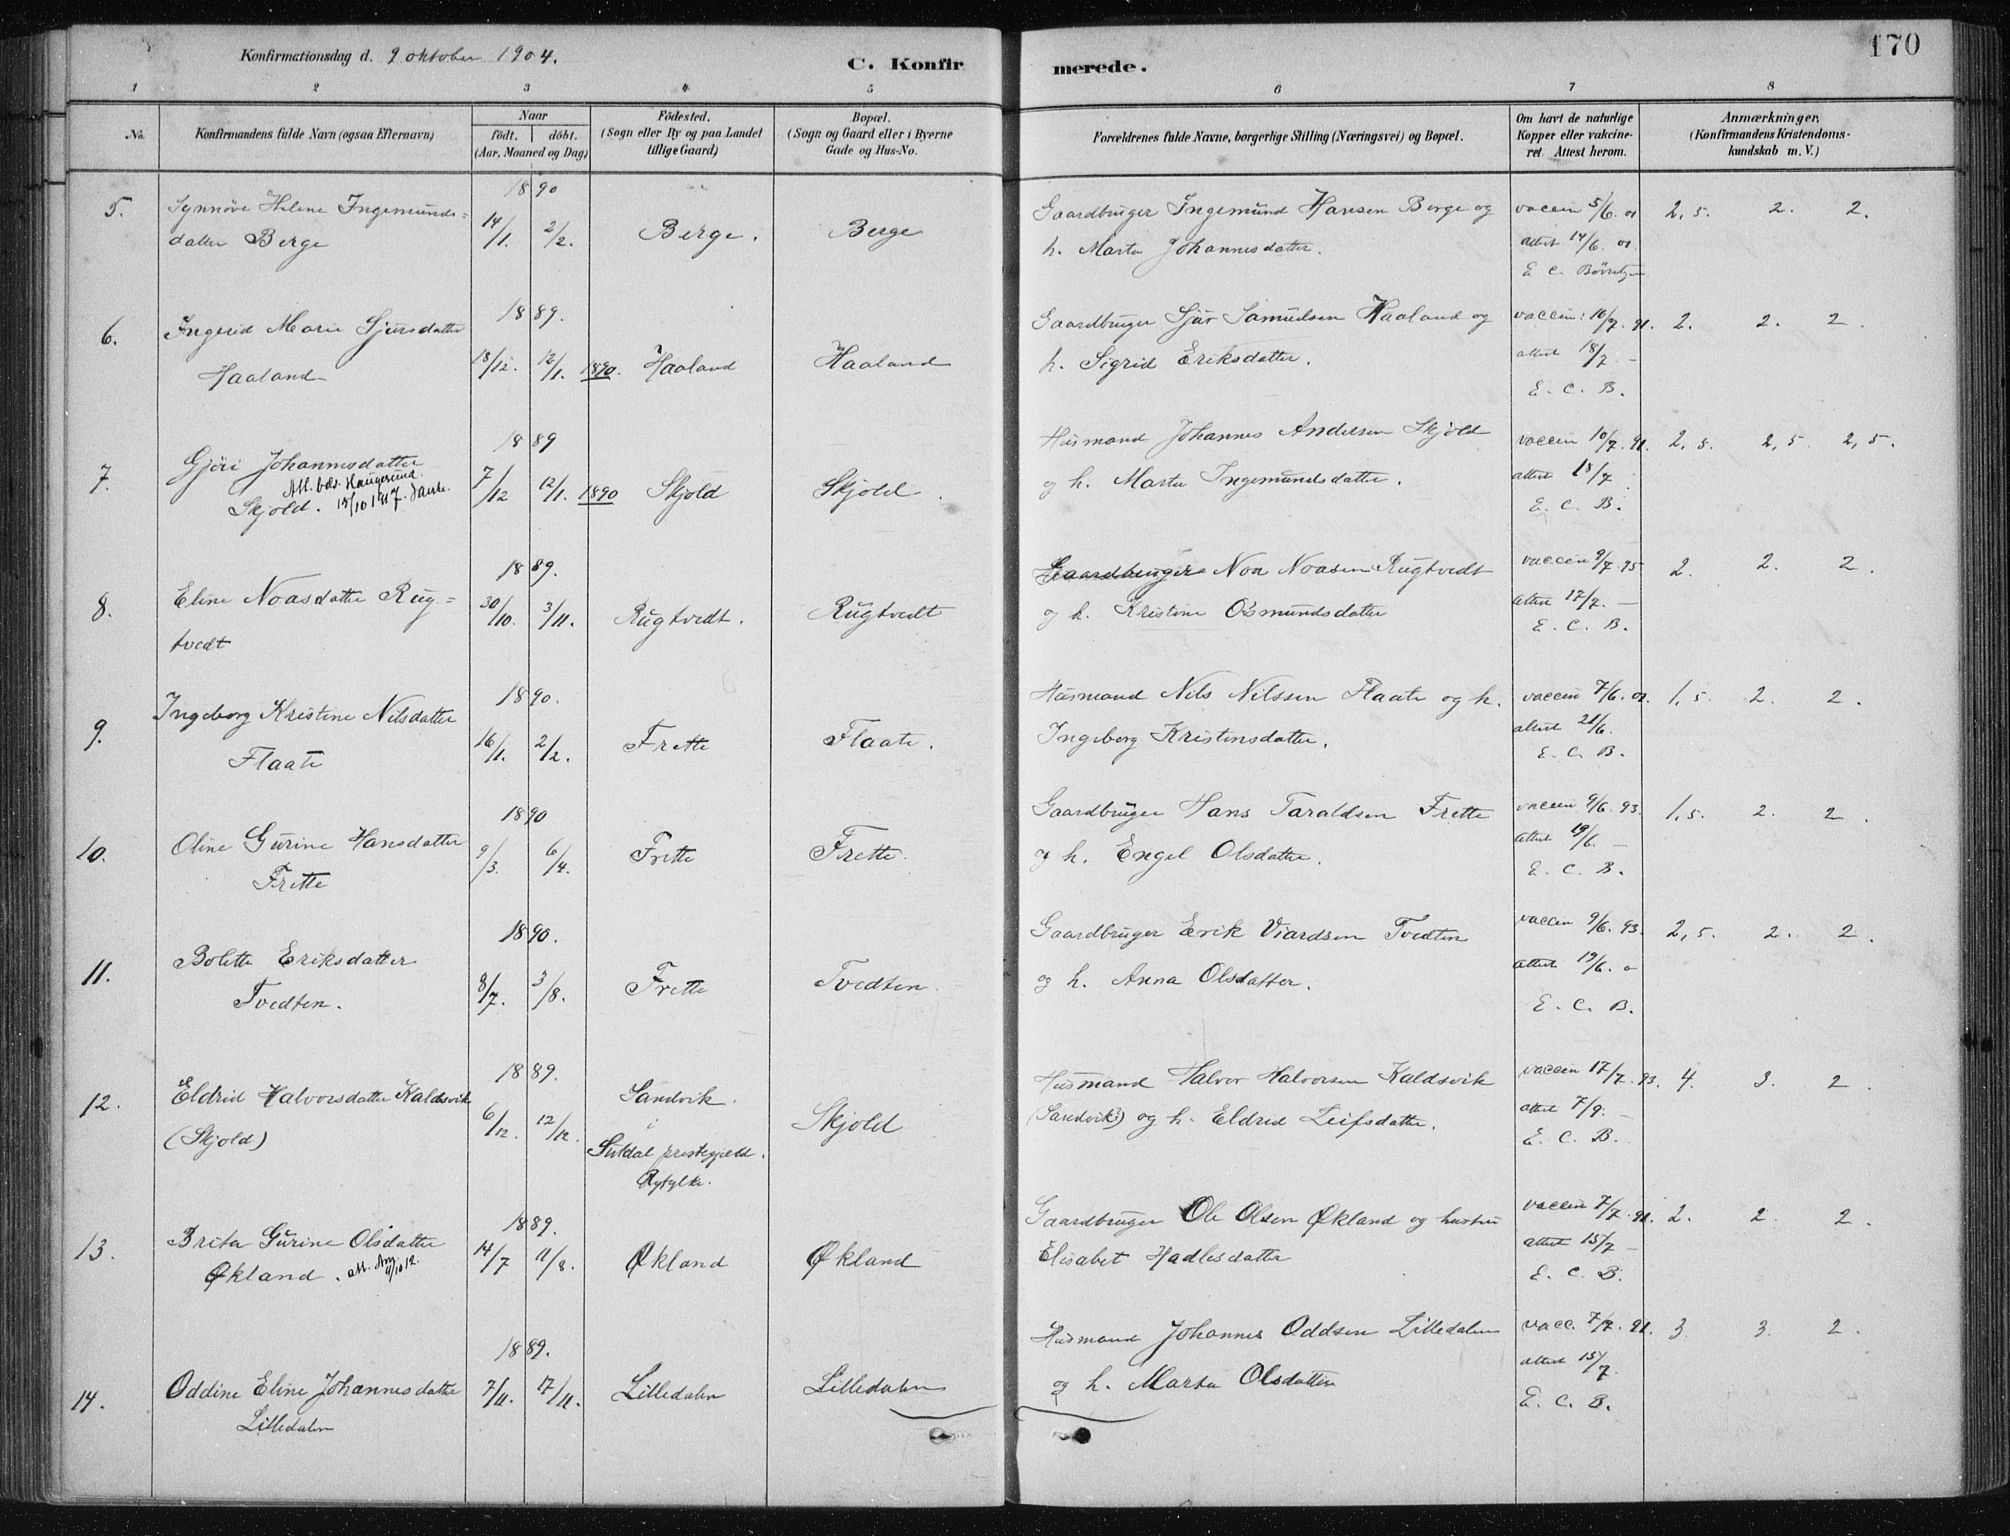 170
Konfirmationsdag d. 9 oktober 1904.
C. Konfirmerede.
1 2 3 4 5 6 7 8
No.
Konfirmandens fulde Navn (ogsaa Efternavn)
Naar
födt. döbt.
(Aar, Maaned og Dag)
Födested.
(Sogn eller By og paa Landet
tillige Gaard)
Bopæl.
(Sogn og Gaard eller i Byerne
Gade og Hus-No.
Forældrenes fulde Navne, borgerlige Stilling (Næringsvei) og Bopæl.
Om havt de naturlige
Kopper eller vakcine-
ret. Attest herom.
Anmærkninger.
(Konfirmandens Kristendoms-
kundskab m. V.)
5. Synnöve Helene Ingemunds=
datter Berge
1890
14/1. 2/2.
Berge.
Berge
Gaardbruger Ingemund Hansen Berge og
h. Marta Johannesdatter.
vaccin 5/6. 01
attest 14/6. 01.
E. C.
2,5. 2. 2.
6. Ingerid Marie Sjursdatter
Haaland
1889.
18/12. 12/1. 1890.
Haaland
Haaland
Gaardbruger Sjur Samuelsen Haaland og
h. Sigrid Eriksdatter.
vaccin: 10/7. 91.
attest 18/7 –
E. C. B.
2. 2. 2.
7. Gjöri Johannesdatter
Skjold.
Att. bes. Haugesund
1889
7/12 12/1. 1890
Skjold
Skjold.
Husmand Johannes Andersen Skjold
og h. Marta Ingemundsdatter.
vaccin 10/7. 91.
attest 18/7.
E. C. B.
2,5. 2,5 2,5.
8. Eline Noasdatter Rug=
tvedt
1889.
30/10. 3/11.
Rugtvedt.
Rugtvedt
Gaardbruger Noa Noasen Rugtvedt
og h. Kristine Osmundsdatter
vaccin 9/7. 95
attest 17/7. –
E. C. B.
2. 2. 2.
9. Ingeborg Kristine Nilsdatter
Flaate
1890.
16/1. 2/2.
Frette
Flaate.
Husmand Nils Nilssen Flaate og h.
Ingeborg Kristensdatter.
vaccin 7/6. 01.
attest 21/6.
E. C. B.
1,5. 2. 2.
10. Oline Gurine Hansdatter
Frette
1890
9/3. 6/4.
Frette
Frette.
Gaardbruger Hans Taraldsen Frette
og h. Engel Olsdatter.
vaccin 9/6. 93.
attest 19/6. –
E. C. B.
1,5. 2. 2.
11. Bolette Eriksdatter
Tvedten.
1890.
8/7. 3/8.
Frette
Tvedten.
Gaardbruger Erik Viardsen Tvedten
og h. Anna Olsdatter.
vaccin 9/6. 93.
attest 19/6.
E. C. B.
2,5. 2. 2.
12. Eldrid Halvorsdatter Kaldsvik
(Skjold)
1889.
6/12. 12/12.
Sandvik.
i
Suldal prestegjeld.
Ryfylke.
Skjold
Husmand Halvor Halvorsen Kaldsvik
(Sandvik?) og h. Eldrid Leifsdatter.
vaccin 17/7. 93.
attest 7/9. –
E. C. B.
4. 3. 2.
13. Brita Gurine Olsdatter
Økland.
1889.
14/7 11/8.
Økland
Økland
Gaardbruger Ole Olsen Økland og hustru
Elisabet Hadlesdatter
vaccin 7/7. 91.
attest 15/7 –
E. C. B.
2. 2. 2.
14. Oddine Eline Johannesdatter
Lilledalen
1889.
7/11. 17/11.
Lilledalen
Lilledalen
Husmand Johannes Oddsen Lilledalen
og h. Marta Olsdatter
vacc. 7/7. 91.
attest 15/7
E. C. B.
3. 3. 2.